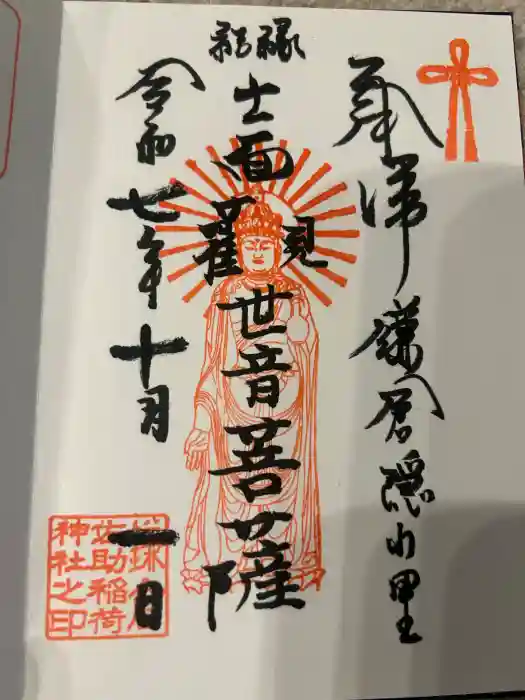 奉拝 鎌倉隠れ里
縁結
十一面觀世音菩薩
令和七年十月一日
鎌倉
佐助稲荷
神社之印